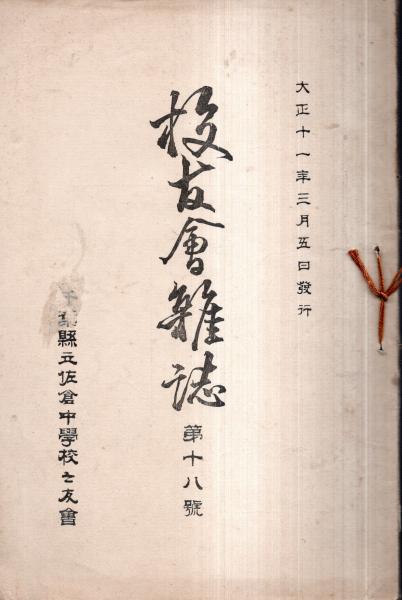 大正十一年三月五日發行
校友會雜誌
第十八號
千葉縣立佐倉中學校之友會